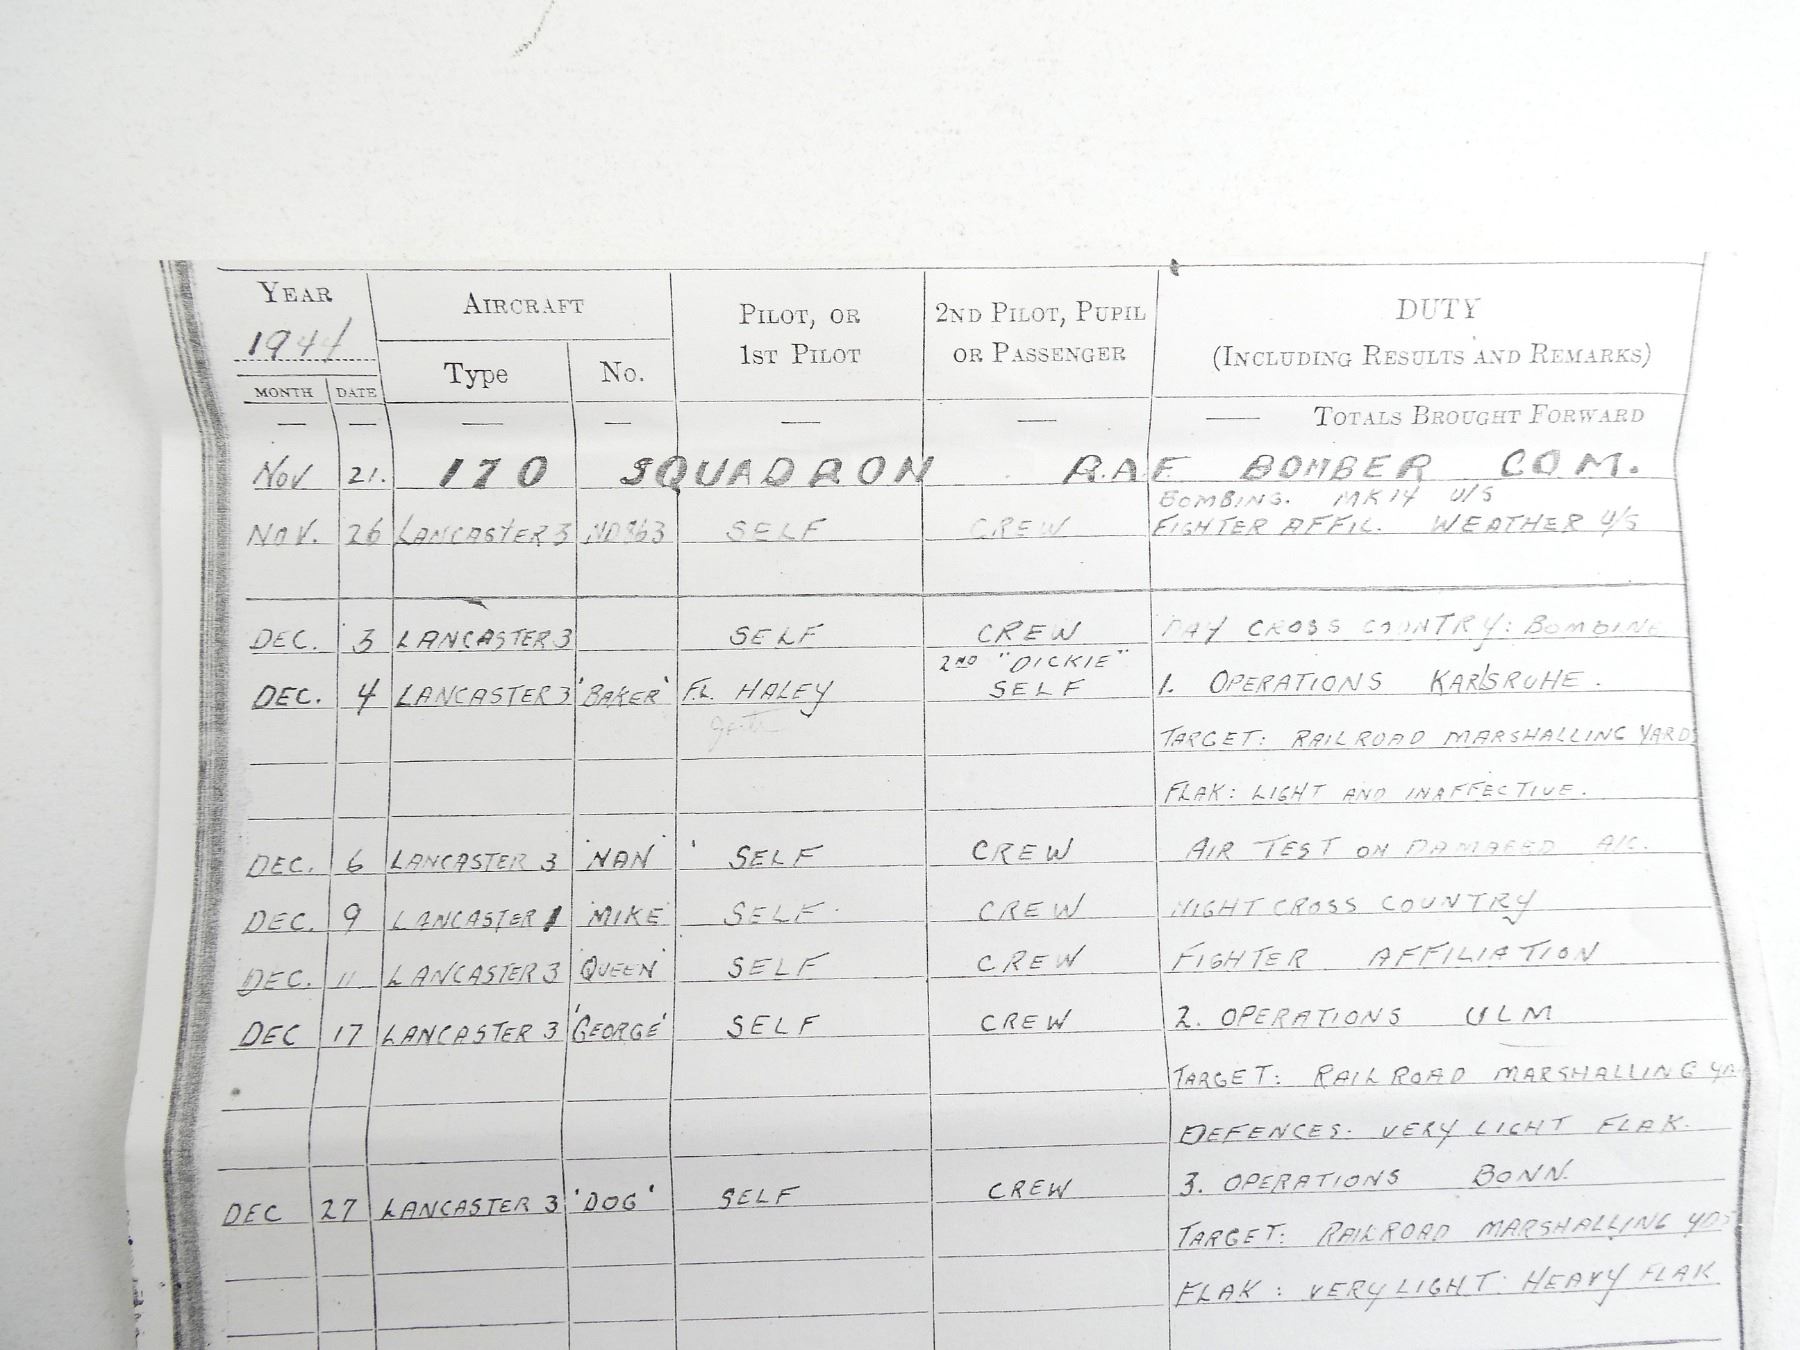 YEAR AIRCRAFT PILOT, OR 2ND PILOT, PUPIL DUTY
1944 Type No. 1ST PILOT OR PASSENGER (INCLUDING RESULTS AND REMARKS)
MONTH DATE
— — — — — — — TOTALS BROUGHT FORWARD
NOV 21. 170 SQUADRON R.A.F. BOMBER COM.
BOMBING. MK 14 U/S
NOV. 26 LANCASTER 3 SELF CREW FIGHTER AFFIL. WEATHER U/S
DEC. 3 LANCASTER 3 SELF CREW DAY CROSS COUNTRY: BOMBING
2ND "DICKIE"
DEC. 4 LANCASTER 3 'BAKER' F.L. HALEY SELF 1. OPERATIONS KARLSRUHE.
TARGET: RAILROAD MARSHALLING YARDS
FLAK: LIGHT AND INAFFECTIVE.
DEC. 6 LANCASTER 3 'NAN' SELF CREW AIR TEST ON DAMAGED A/C.
DEC. 9 LANCASTER 1 'MIKE' SELF CREW NIGHT CROSS COUNTRY
DEC. 11 LANCASTER 3 'QUEEN' SELF CREW FIGHTER AFFILIATION
DEC 17 LANCASTER 3 'GEORGE' SELF CREW 2. OPERATIONS ULM
TARGET: RAILROAD MARSHALLING
DEFENCES. VERY LIGHT FLAK.
DEC 27 LANCASTER 3 'DOG' SELF CREW 3. OPERATIONS BONN.
TARGET: RAILROAD MARSHALLING YDS
FLAK: VERY LIGHT: HEAVY FLAK